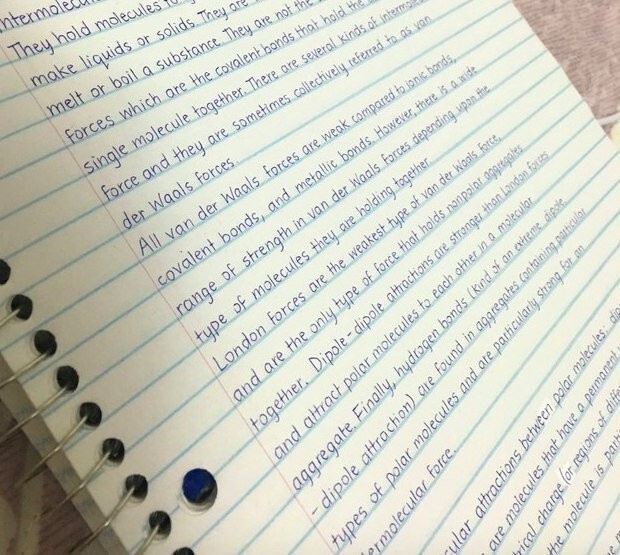 They hold molecules
make liquids or solids. They are
melt or boil a substance. They are not the
forces which are the covalent bonds that hold the
single molecule together. There are several kinds of
force and they are sometimes collectively referred to as van
der Waals forces.
All van der Waals forces are weak compared to ionic bonds,
covalent bonds, and metallic bonds. However, there is a wide
range of strength in van der Waals forces depending upon the
type of molecules they are holding together
London forces are the weakest type of van der Waals force,
and are the only type of force that holds nonpolar aggregates
together. Dipole-dipole attractions are stronger than London forces
and attract polar molecules to each other in a molecular
aggregate. Finally, hydrogen bonds (kind of an extreme dipole
-dipole attraction) are found in aggregates containing particular
types of polar molecules and are particularly strong for an
force.
attractions between polar molecules.
are molecules that have a permanent
charge (or regions of
the molecule is